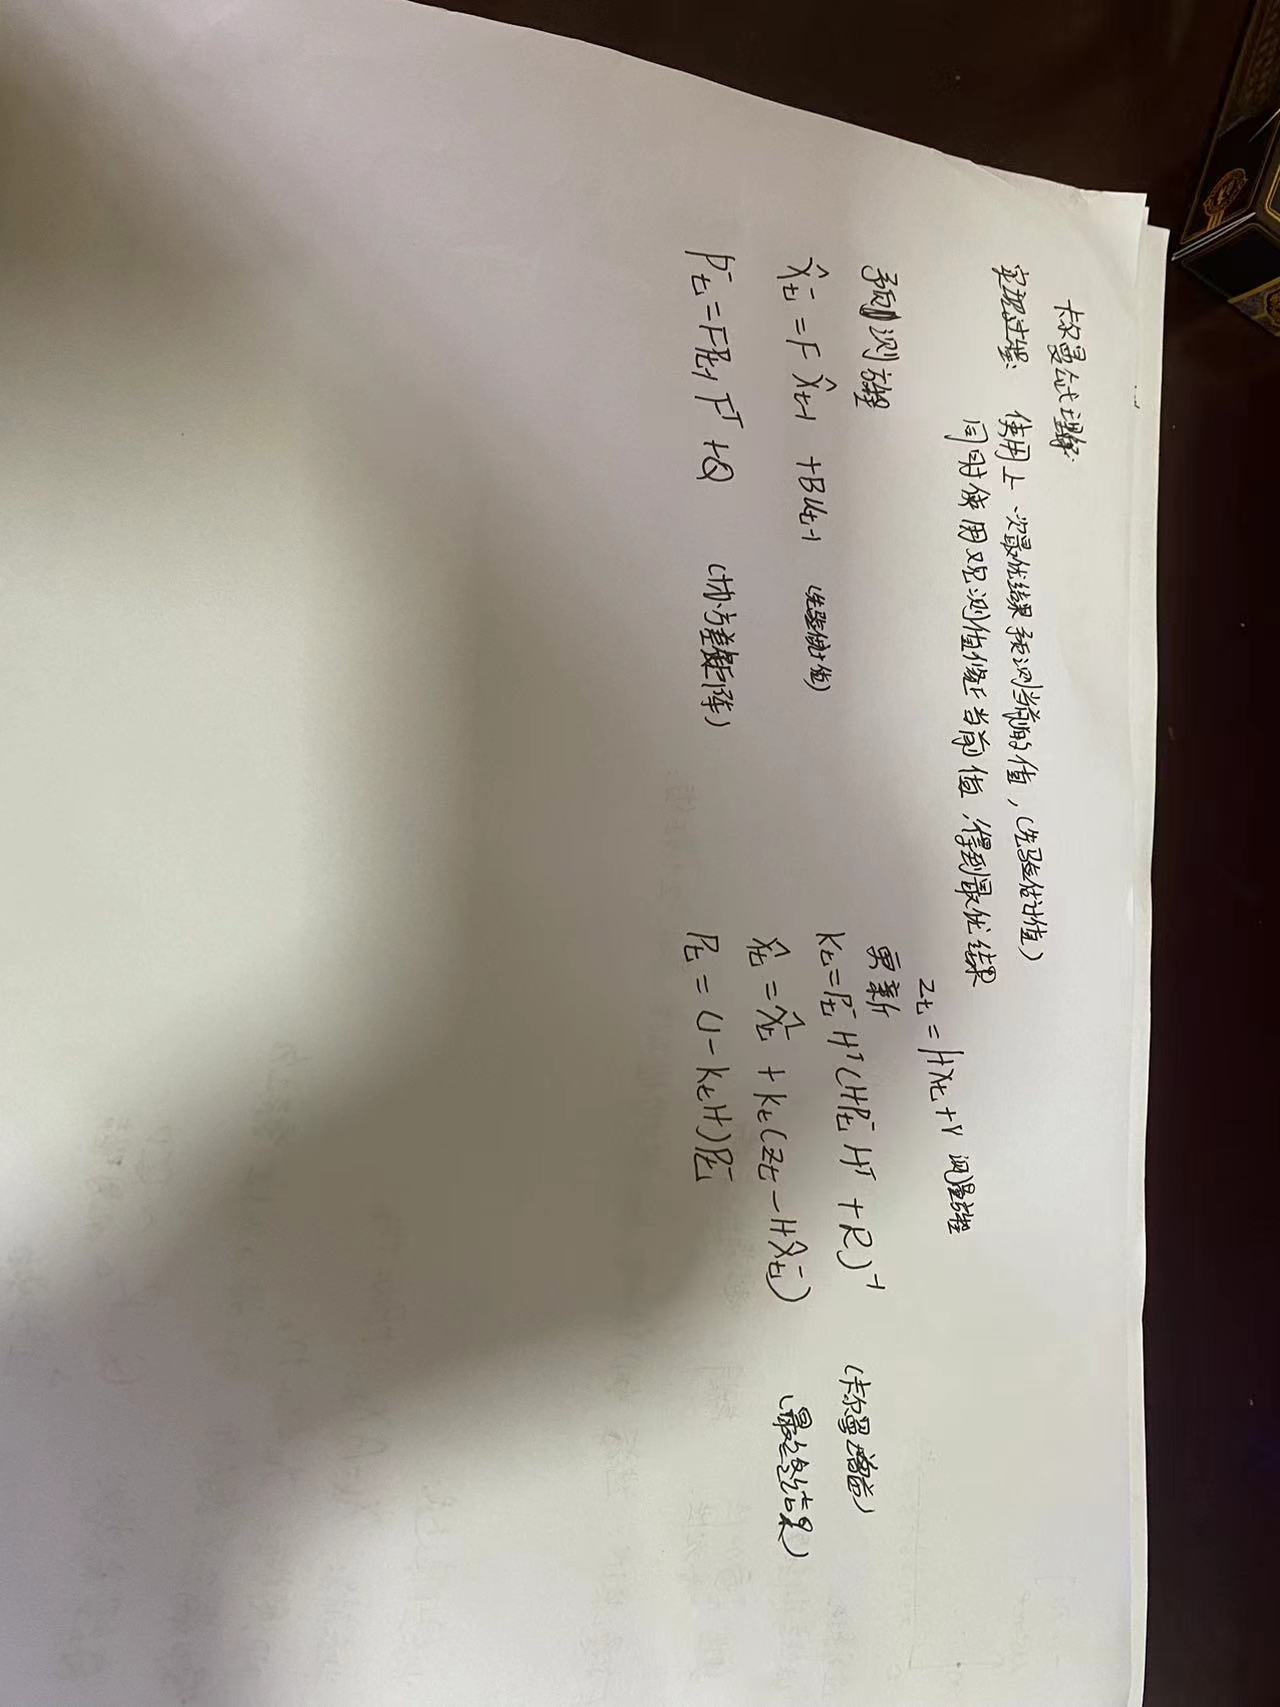 卡尔曼公式理解:
实现过程: 使用上一次最优结果预测当前的值,(先验估计值)
同时使用观测值修正当前值,得到最优结果
Zt = HXt + V 测量方程
预测方程
X̂t⁻ = F X̂t-1 + But-1 (先验估计值)
Pt⁻ = FPt-1 Fᵀ + Q (协方差矩阵)
更新
Kt = Pt⁻ Hᵀ (HPt⁻ Hᵀ + R)⁻¹ (卡尔曼增益)
X̂t = X̂t⁻ + Kt (Zt − HX̂t⁻) (最终结果)
Pt = (1 − KtH)Pt⁻